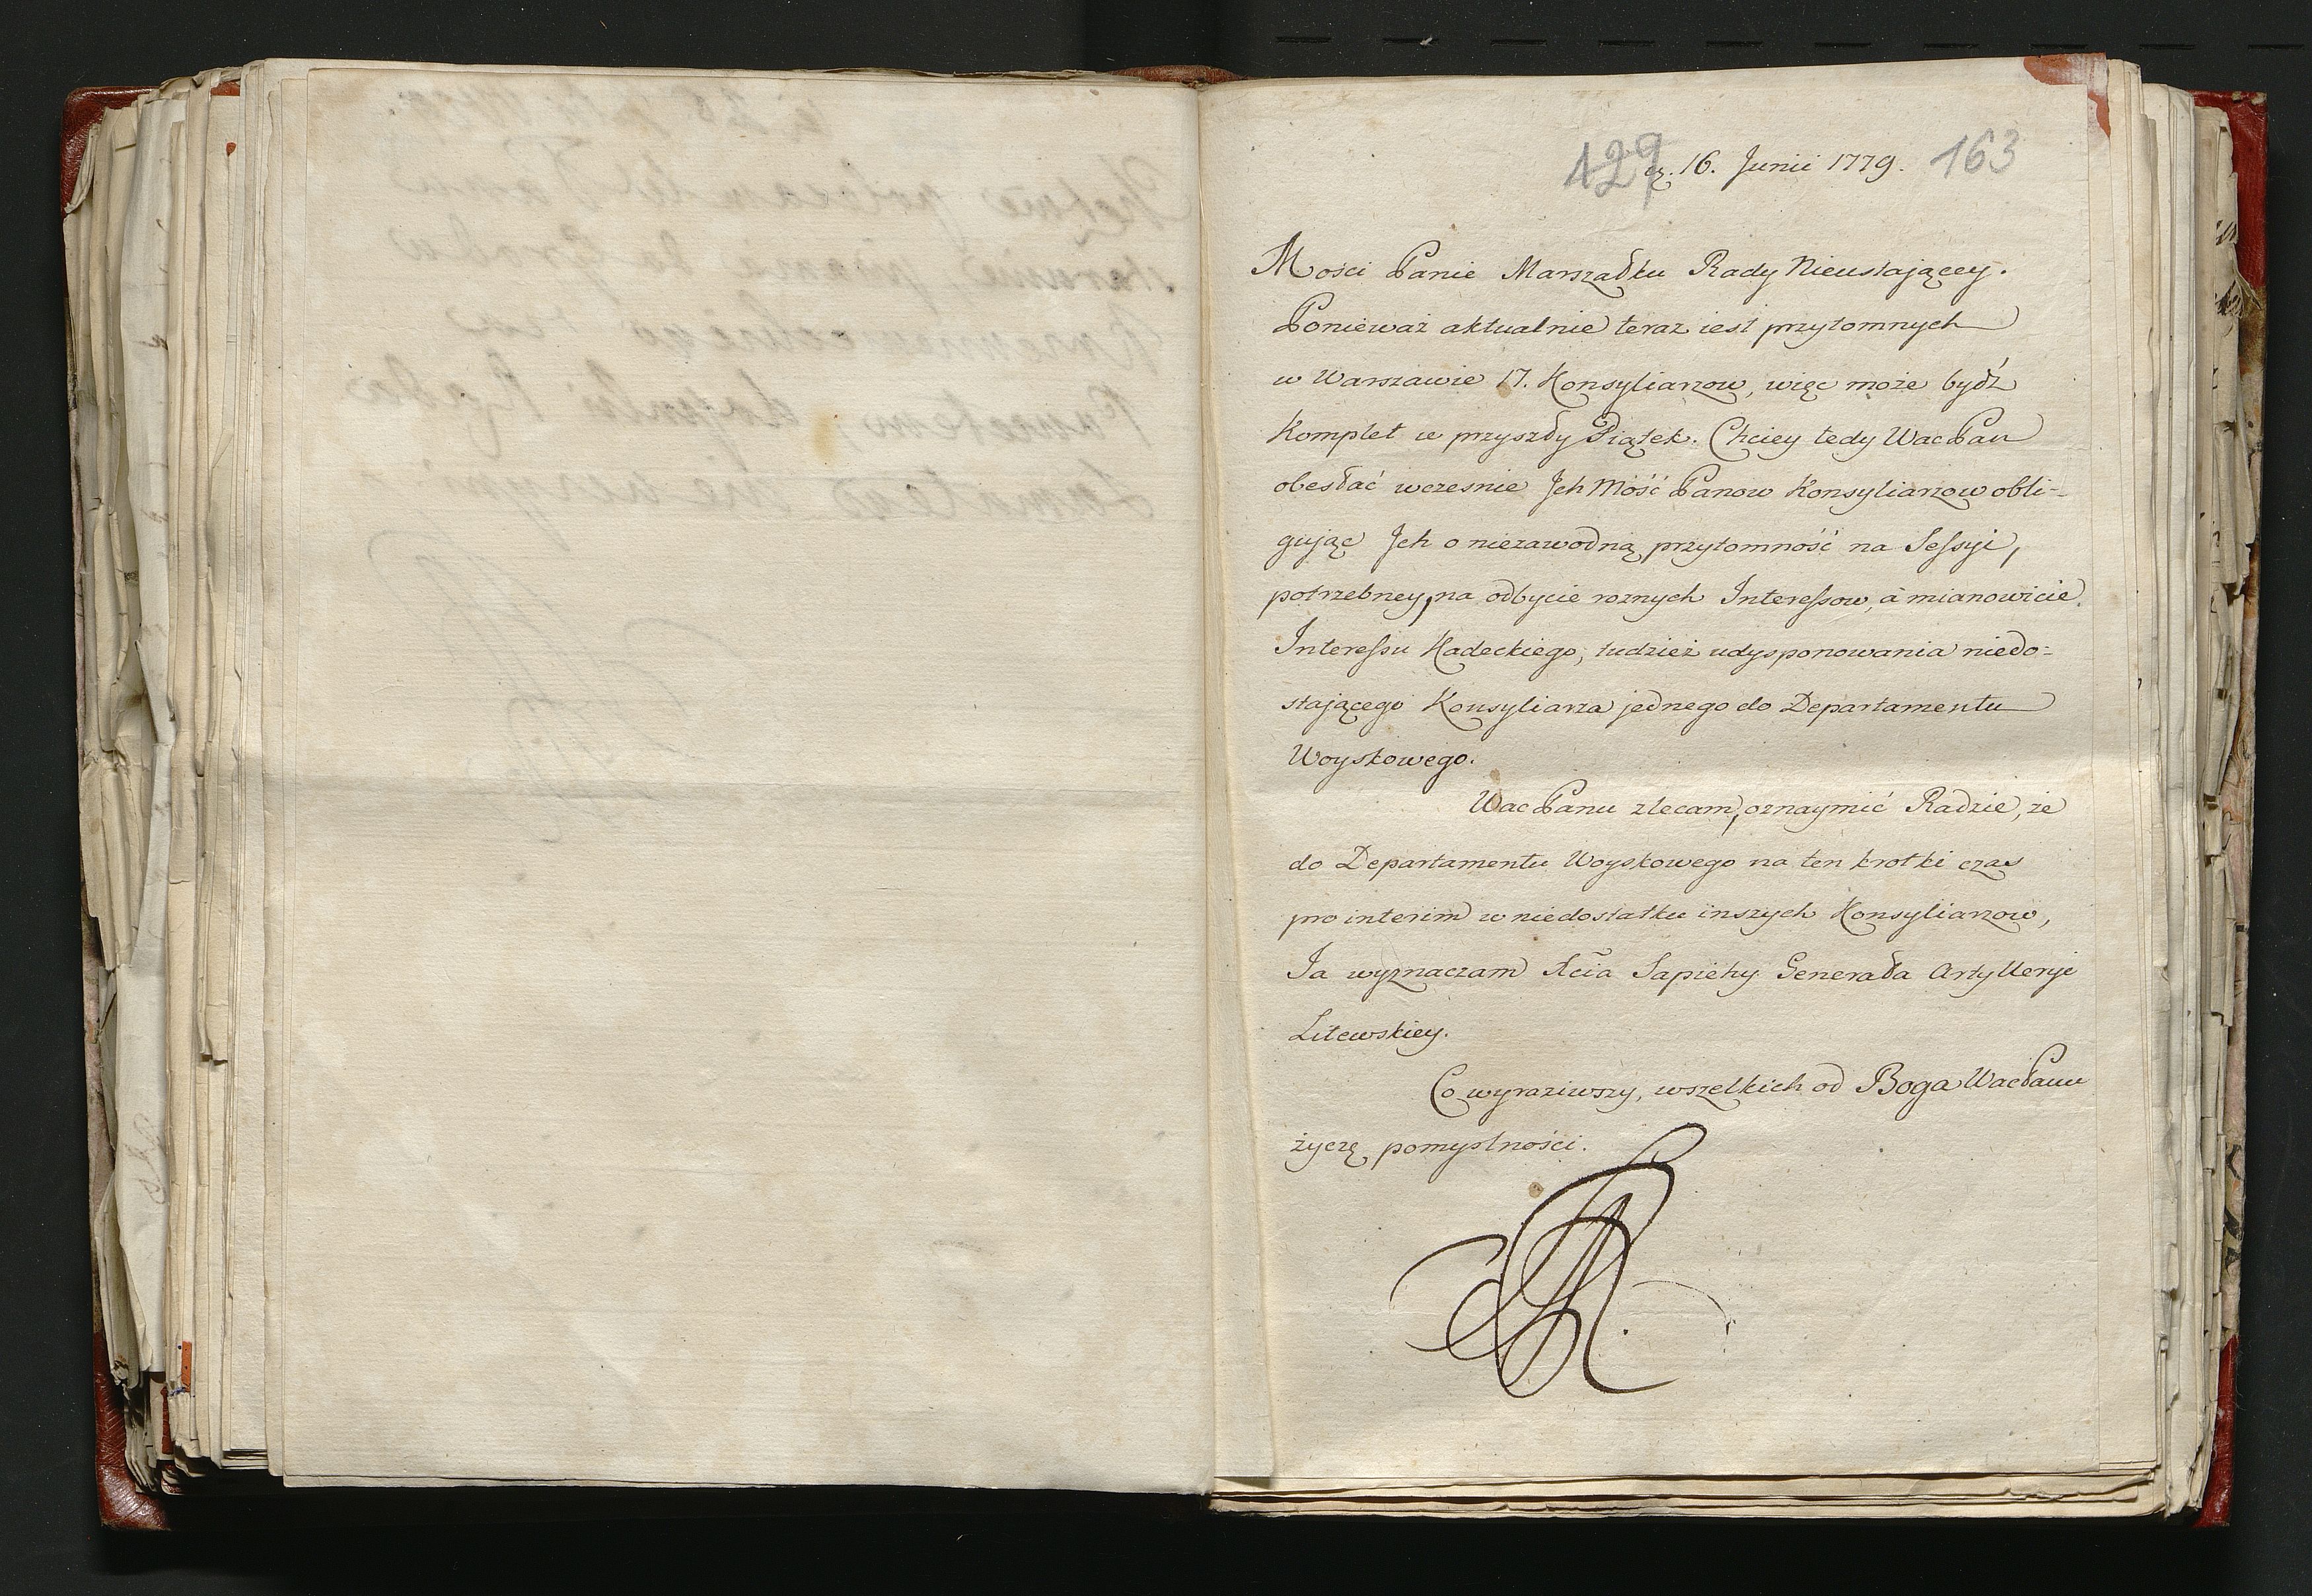 129 16. Junii 1779. 163
Mości Panie Marszałku Rady Nieustaiącey.
Ponieważ aktualnie teraz iest przytomnych
w Warszawie 17. Konsyliarzow, więc może bydź
Komplet w przyszły Piątek. Chciey tedy WacPan
obesłać wczesnie Jch Mość Panow Konsyliarzow obli-
guiąc Jch o niezawodną przytomność na Sessyi,
potrzebney, na odbycie roznych Interessow, à mianowicie
Interessu Kadeckiego, tudzież udysponowania niedo-
staiącego Konsyliarza jednego do Departamentu
Woyskowego.
WacPanu zlecam, oznaymić Radzie, że
do Departamentu Woyskowego na ten krotki czas
pro interim w niedostatku inszych Konsyliarzow,
Ja wyznaczam Xcia Sapiehy Generała Artylleryi
Litewskiey.
Co wyraziwszy, wszelkich od Boga WacPanu
życzę pomyslności.